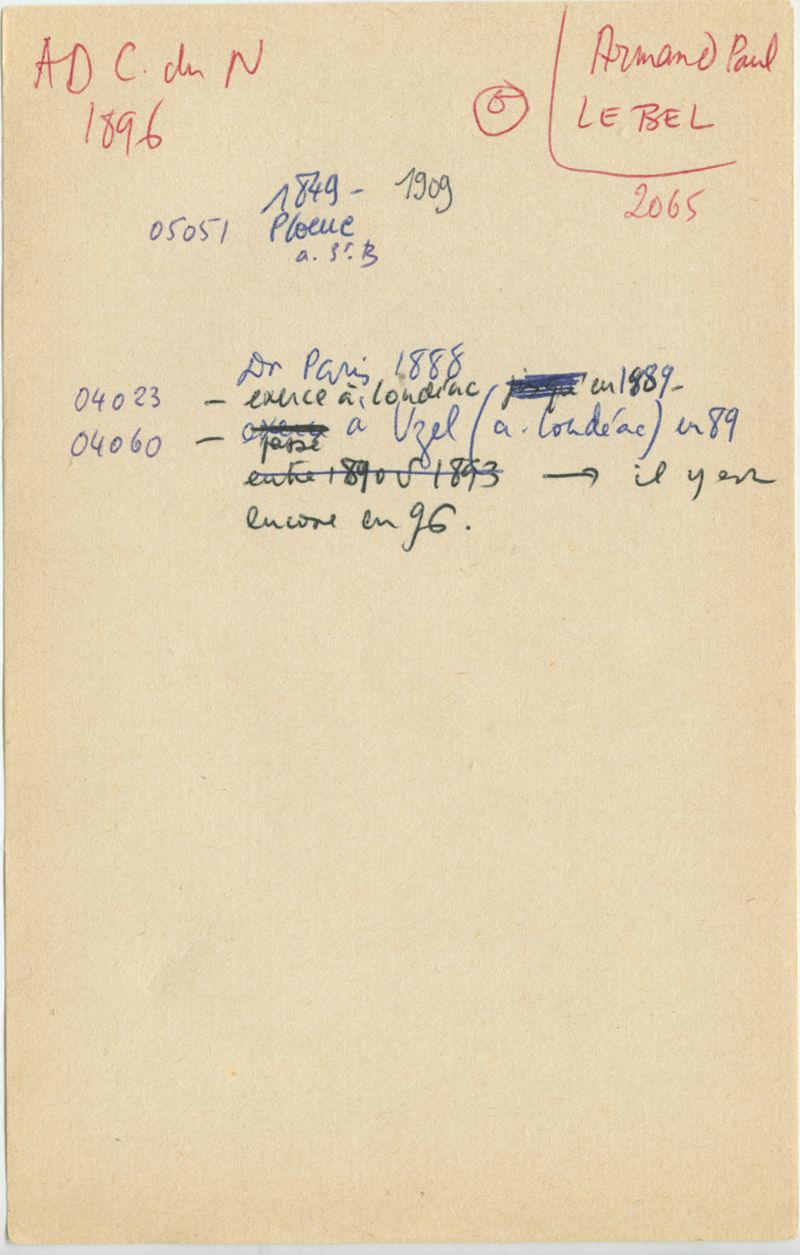 AD C. du N
1896
6
Armand Paul
LE BEL
2065
1849 - 1909
05051 Ploeuc
a. St. B
Dr Paris 1888
04023 - exerce à Loudéac jusqu' en 1889-
04060 - exerce passé à Uzel (a. Loudéac) en 89
entre 1890 & 1893 → il y est
encore en 96.